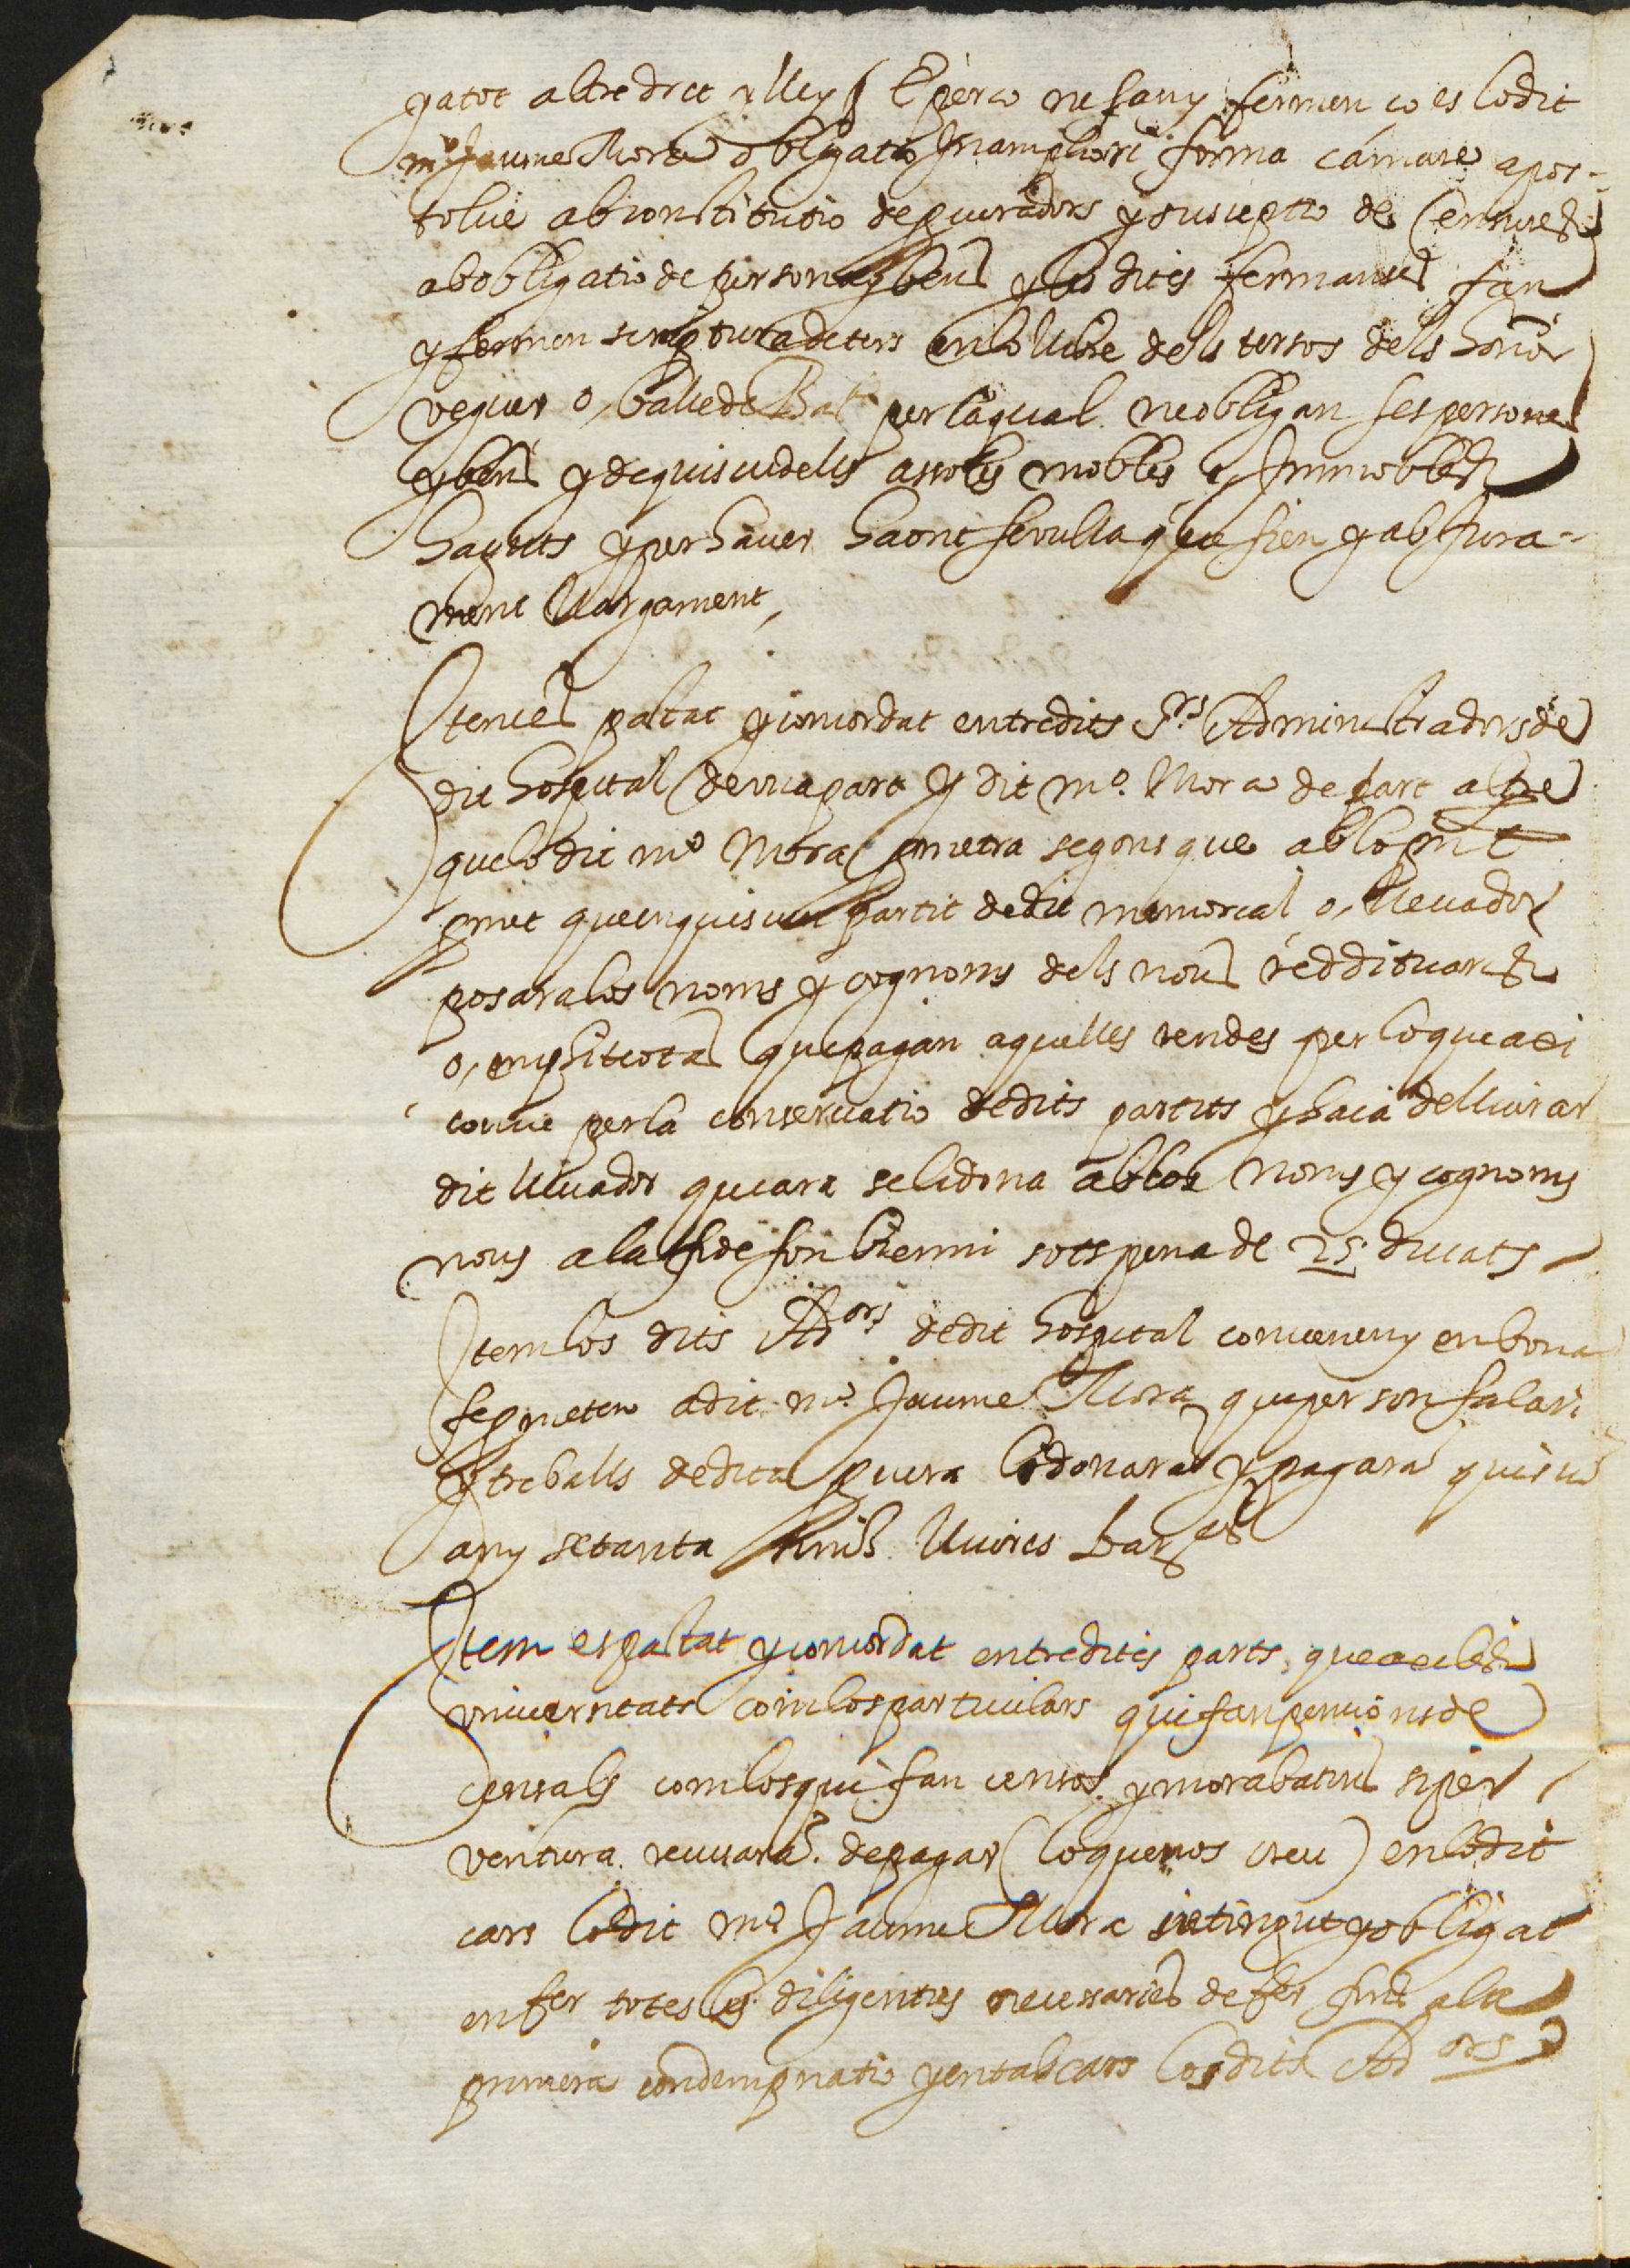 ya tot altre dret y lley E per ço ne fan y fermen ço es lo dit
m.º Jaume Mora obligatio In ampliori forma camare apos-
tolice ab constitutio de procuradors y susceptio de censures
ab obligatio de persona y bens y les dites fermanses fan
y fermen scriptura de ters en lo llibre dels tersos dels honor
veguer o, balle de Bar.ª per la qual ne obligan ses persones
y bens y de quiscu dells assoles mobles e Immobles
haguts y per haver haont se vulla que sien y ab Jura-
ment llargament,
Item es pactat y concordat entre dits S.rs Administradors de
dit hospital de una part y dit m.º Mora de part altre
que lo dit m.º Mora prometra segons que ab lo pnt
promet que en quiscun partit de dit memorial o, llevador
posara los noms y cognoms dels nous reddituaris
o, emphiteotas que pagan aquelles rendes per lo que axi
conve per la conservatio de dits partits y haia de lliurar
dit llevador que ara se li dona ab los noms y cognoms
nous a la fi de son bienni sots pena de 25 ducats
Item los dits Ad.ors de dit hospital convenen y en bona
fe prometen a dit m.º Jaume Mora que per son salari
y treballs de dita procura li donara y pagara quiscu
any setanta sinch lliures bar.es
Item es pactat y concordat entre dites parts, que axi les
universitats com los particulars qui fan pencions de
censals com los qui fan censos y morabatins si per
ventura recusara. de pagar (lo que nos creu) en lo dit
cars lo dit m.º Jaume Mora sie tingut y obligat
en fer totes les diligenties necessaries de fer fins a la
primera condempnatio y en tal cars los dits Ad.ors